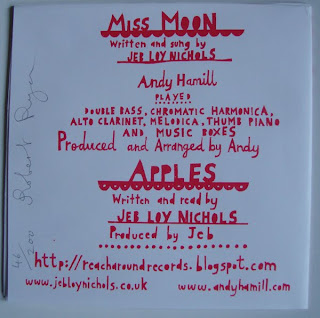 MISS MOON
Written and sung by
JEB LOY NICHOLS
Andy Hamill
PLAYED
DOUBLE BASS, CHROMATIC HARMONICA,
ALTO CLARINET, MELODICA, THUMB PIANO
AND MUSIC BOXES
Produced and Arranged by Andy
APPLES
Written and read by
JEB LOY NICHOLS
Produced by Jeb
http://reacharoundrecords.blogspot.com
www.jebloynichols.co.uk www.andyhamill.com
46/200 Robert Ryan